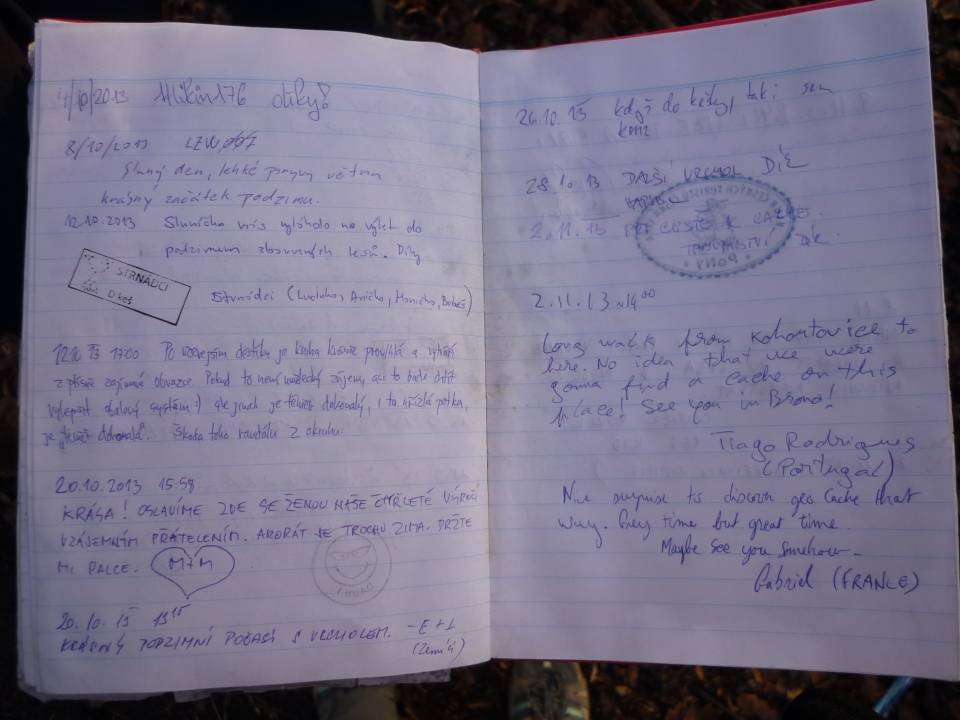 4/10/2013 Hlikin176 díky!
8/10/2013 LZW
Slunný den, lehké poryvy větru
krásný začátek podzimu.
12.10.2013 Sluníčko nás vylákalo na výlet do
podzimem zbarvených lesů. Díky
STRNADCI
Strnádci (Lucinka, Anička, Monička,
17:00 Po je kniha
z zajímavé obvazce. Pokud to není vědecký zájem,
obalový systém :) ale jinak je téměř dokonalý, i ta
je téměř dokonalá. Škoda toho randálu z okruhu.
20.10.2013 15:58
KRÁSA! OSLAVÍME ZDE SE ŽENOU NAŠE ČTYŘLETÉ VÝROČÍ
VZÁJEMNÝM PŘÁTELENÍM. AKORÁT JE TROCHU ZIMA. DRŽTE
MI PALCE. M+M
20.10.13 13 15
KRÁSNÝ PODZIMNÍ POČASÍ S VRCHOLEM. -E+L
26.10.13 když do knihy, tak: sem
konz
28.10.13 DALŠÍ VRCHOL DÍK
2.11.13 PŘI CESTĚ K CACHE.
DÍK.
2.11.13 14 00
Long walk from Kohoutovice to
here. No idea that we were
gonna find a cache on this
place! See you in Brno!
Tiago Rodrigues
(Portugal)
Nice surprise to discover geo cache that
way. Grey time but great time.
Maybe see you somehow
Gabriel (FRANCE)